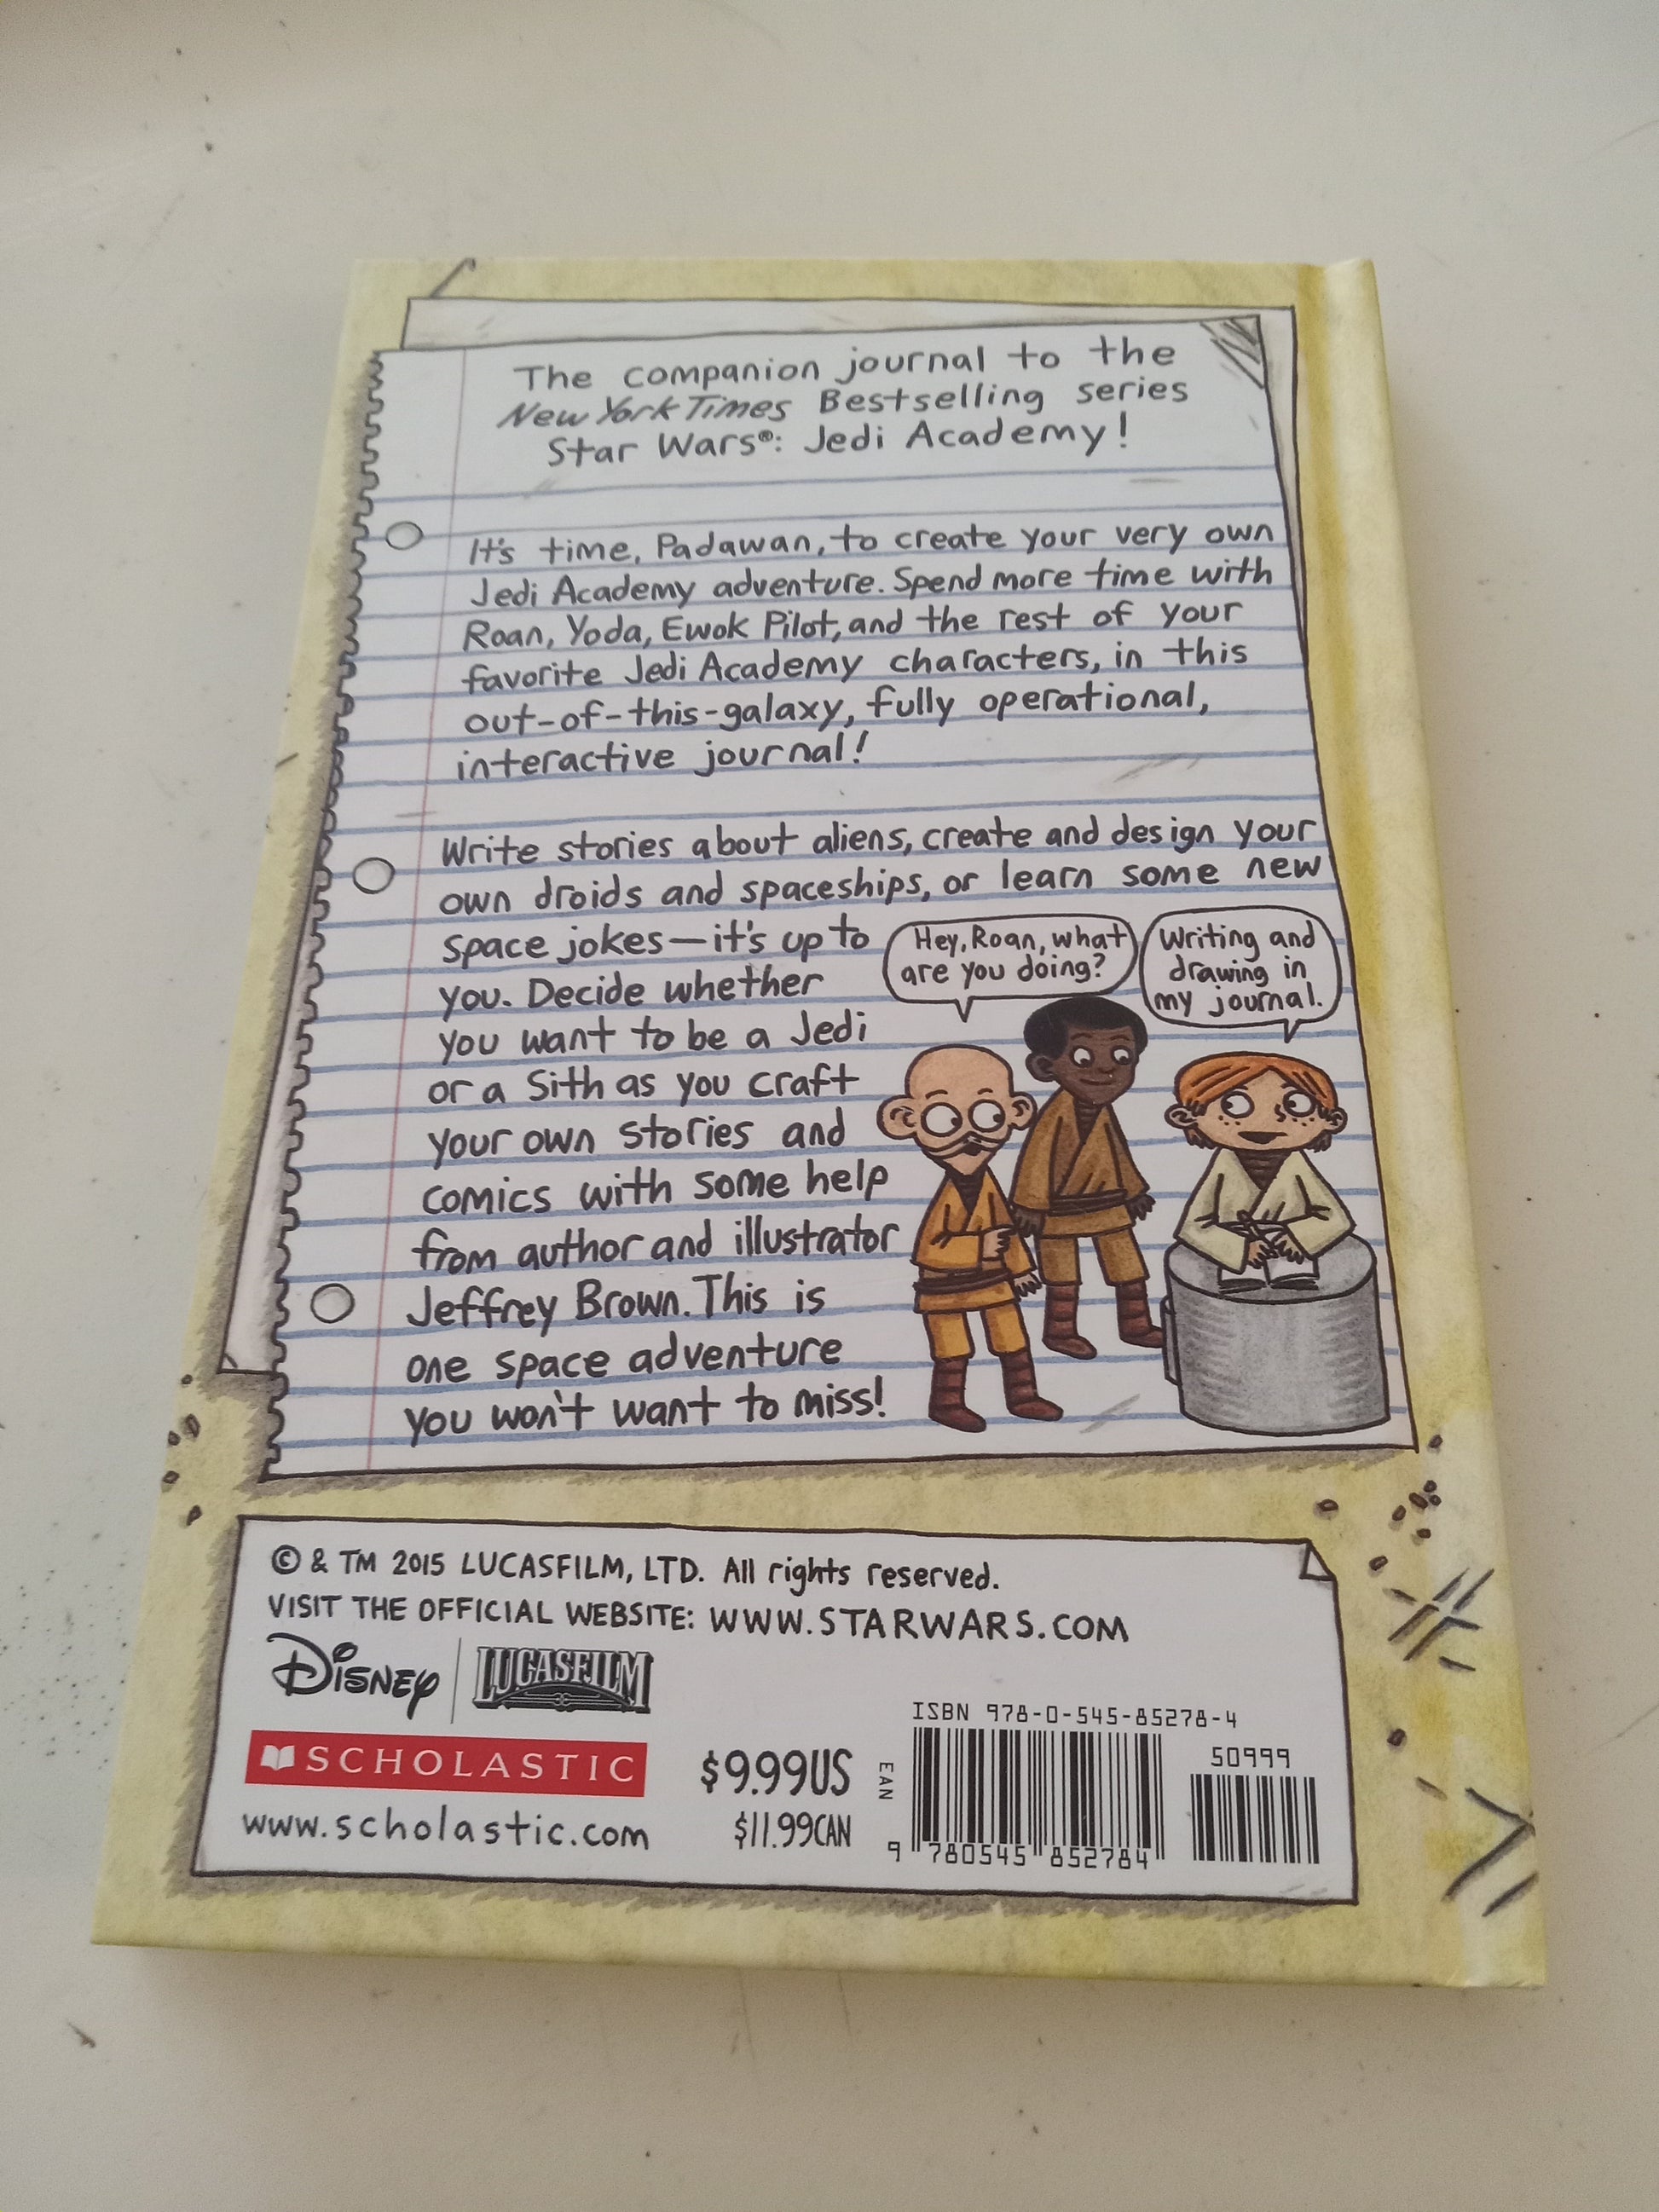 The companion journal to the
New York Times Bestselling series
Star Wars®: Jedi Academy!
It's time, Padawan, to create your very own
Jedi Academy adventure. Spend more time with
Roan, Yoda, Ewok Pilot, and the rest of your
favorite Jedi Academy characters, in this
out-of-this-galaxy, fully operational,
interactive journal!
Write stories about aliens, create and design your
own droids and spaceships, or learn some new
space jokes—it's up to
you. Decide whether
you want to be a Jedi
or a Sith as you craft
your own stories and
comics with some help
from author and illustrator
Jeffrey Brown. This is
one space adventure
you won't want to miss!
Hey, Roan, what
are you doing?
Writing and
drawing in
my journal.
© & TM 2015 LUCASFILM, LTD. All rights reserved.
VISIT THE OFFICIAL WEBSITE: WWW.STARWARS.COM
Disney
LUCASFILM
SCHOLASTIC
www.scholastic.com
$9.99US
$11.99CAN
ISBN 978-0-545-85278-4
50999
EAN
9 780545 852784